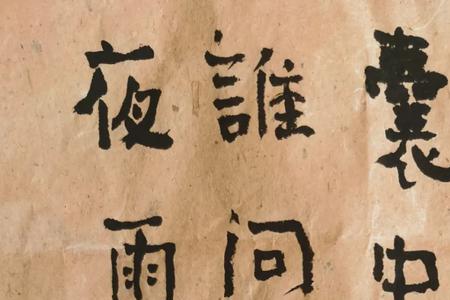 囊中
誰問
夜雨